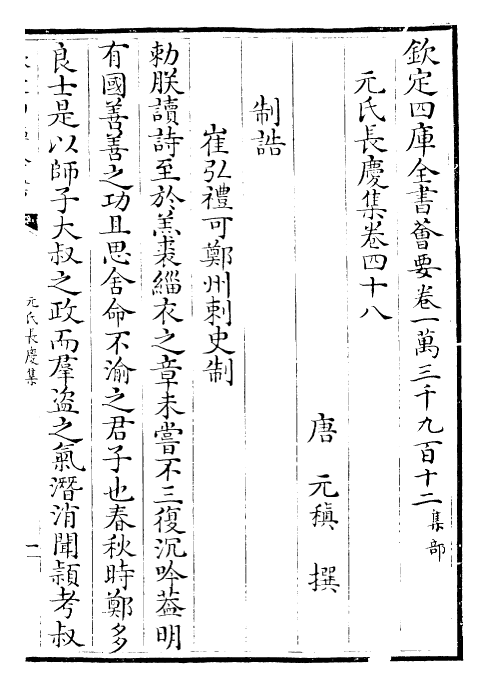 欽定四庫全書薈要卷一萬三千九百十二集部
元氏長慶集卷四十八
唐 元稹 撰
制誥
崔弘禮可鄭州刺史制
勅朕讀詩至於羔裘緇衣之章未嘗不三復沉吟葢明
有國善善之功且思舍命不渝之君子也春秋時鄭多
良士是以師子大叔之政而羣盗之氣潛消聞頴考叔
元氏長慶集
一